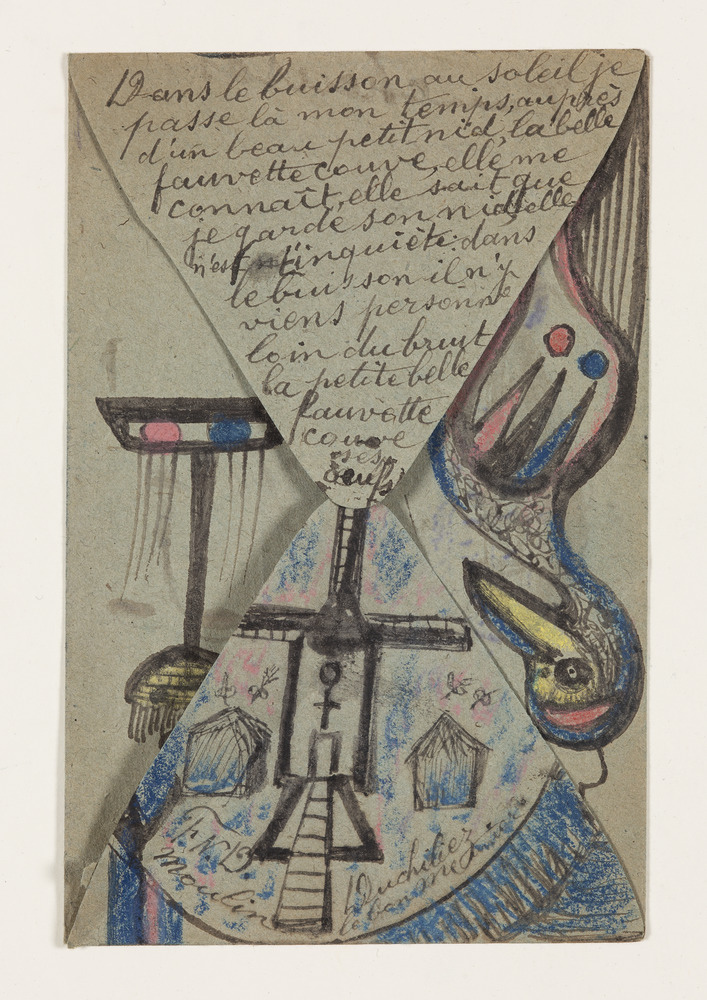 Dans le buisson au soleil je
passe là mon temps, auprès
d'un beau petit nid, la belle
fauvette couve, elle me
connaît, elle sait que
je garde son nid elle
n'est inquiète. dans
le buisson il n'y
viens personne
loin du bruyt
la petite belle
fauvette
couve
ses
oeufs
Moulin